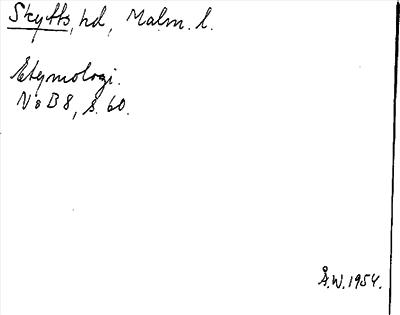 Skytts, hd, Malm. l.
Etymologi.
NoB 8, s. 60.
Å.W. 1954.